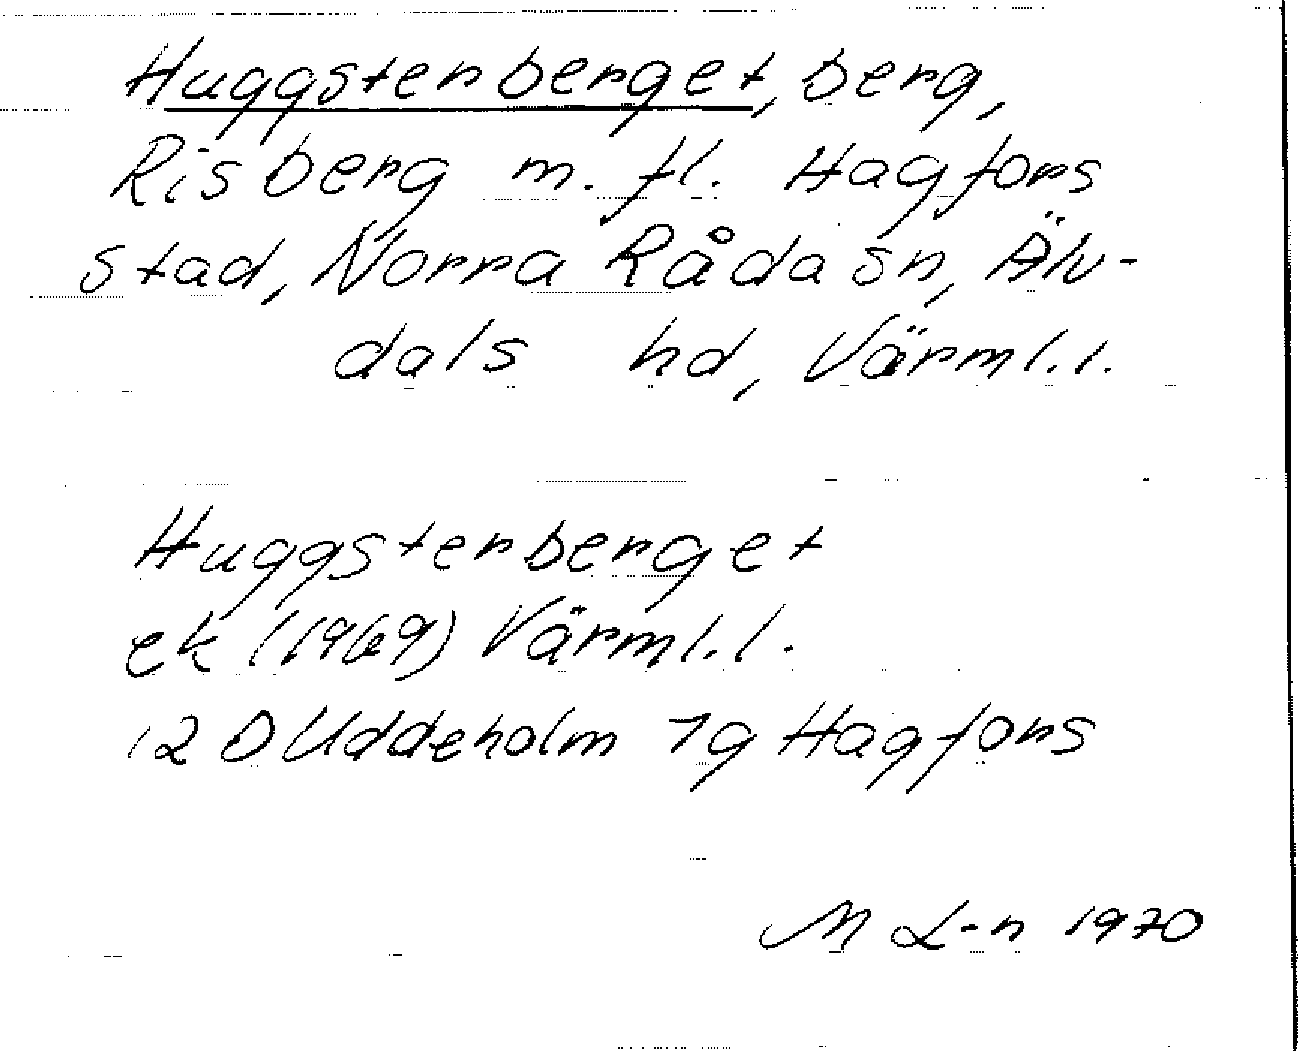 Huggstenberget, berg,
Risberg m. fl. Hagfors
stad, Norra Råda sn, Älv-
dals hd, Värml. l.
Huggstenberget
ek (1969) Värml. l.
12 D Uddeholm 7g Hagfors
M L-n 1970